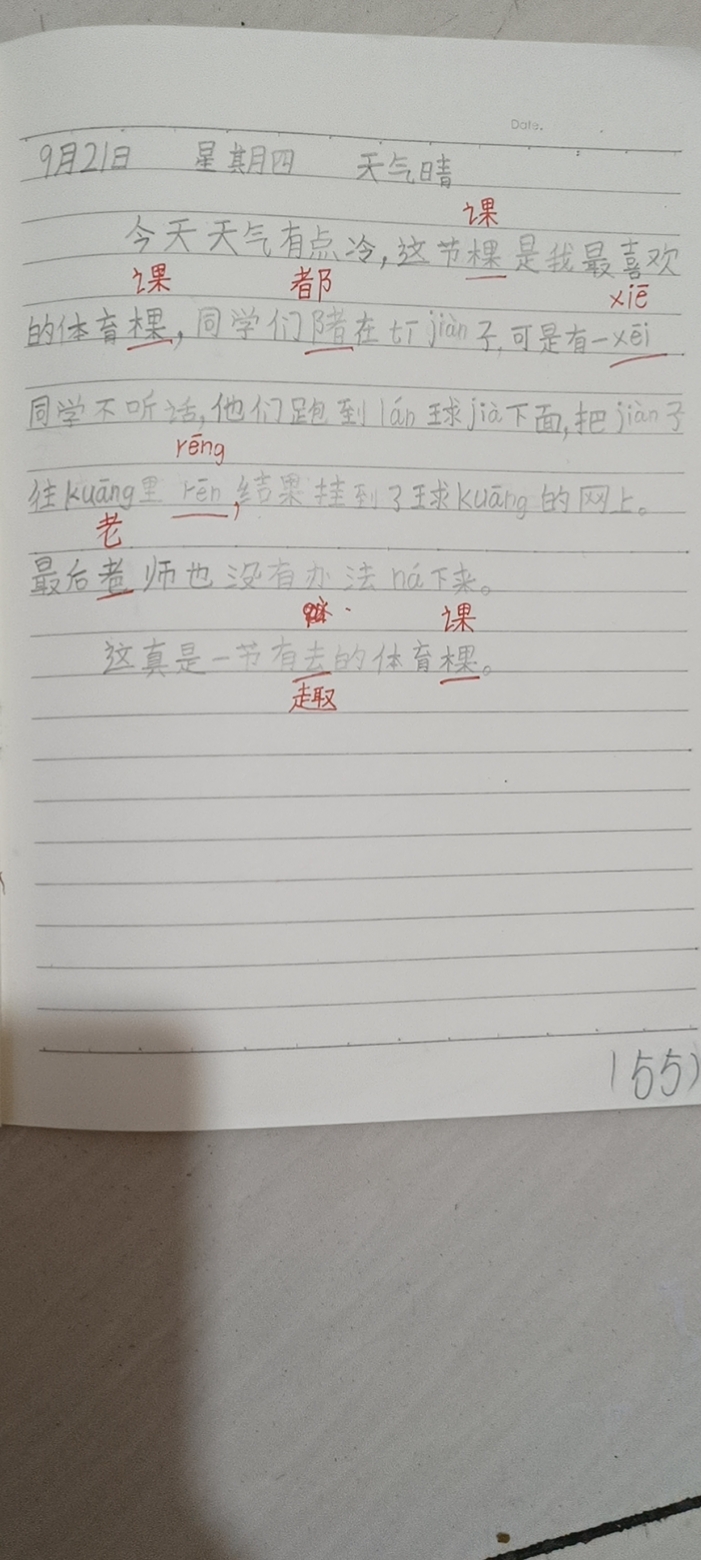 Date.
9月21日 星期四 天气晴
课
今天天气有点冷,这节棵是我最喜欢
课 都 xiē
的体育棵,同学们陼在tī jiàn子,可是有一xēi
同学不听话,他们跑到lán球jià下面,把jiàn子
rēng
往kuāng里rēn,结果挂到了球kuāng的网上。
老
最后老师也没有办法ná下来。
课
这真是一节有去的体育棵。
趣
155)